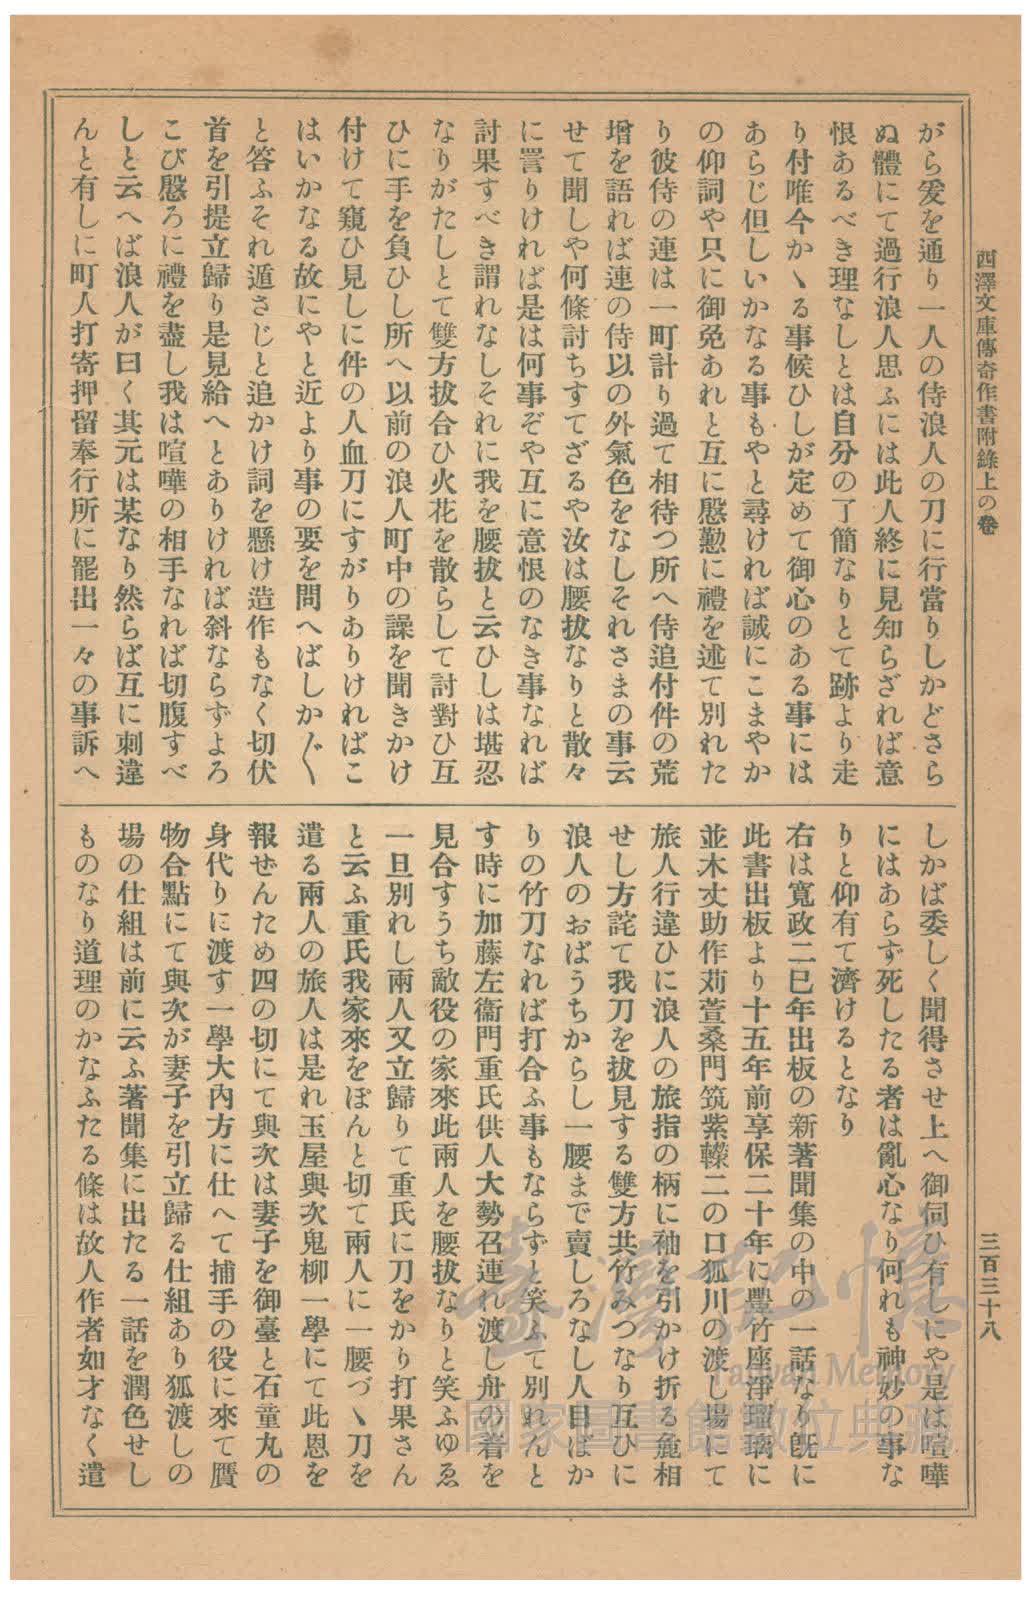 西澤文庫傳奇作書附錄上の卷
三百三十八
がら爰を通り一人の侍浪人の刀に行當りしかどさら
ぬ體にて過行浪人思ふには此人終に見知らざれば意
恨あるべき理なしとは自分の了簡なりとて跡より走
り付唯今かゝる事候ひしが定めて御心のある事には
あらじ但しいかなる事もやと尋ければ誠にこまやか
の仰詞や只に御免あれと互に慇懃に禮を述て別れた
り彼侍の連は一町計り過て相待つ所へ侍追付件の荒
增を語れば連の侍以の外氣色をなしそれさまの事云
せて聞しや何條討ちすてざるや汝は腰拔なりと散々
に詈りければ是は何事ぞや互に意恨のなき事なれば
討果すべき謂れなしそれに我を腰拔と云ひしは堪忍
なりがたしとて雙方拔合ひ火花を散らして討對ひ互
ひに手を負ひし所へ以前の浪人町中の譟を聞きかけ
付けて窺ひ見しに件の人血刀にすがりありければこ
はいかなる故にやと近より事の要を問へばしか〴〵
と答ふそれ遁さじと追かけ詞を懸け造作もなく切伏
首を引提立歸り是見給へとありければ斜ならずよろ
こび慇ろに禮を盡し我は喧嘩の相手なれば切腹すべ
しと云へば浪人が曰く其元は某なり然らば互に刺違
んと有しに町人打寄押留奉行所に罷出一々の事訴へ
しかば委しく聞得させ上へ御伺ひ有しにや是は喧嘩
にはあらず死したる者は亂心なり何れも神妙の事な
りと仰有て濟けるとなり
右は寬政二巳年出板の新著聞集の中の一話なり旣に
此書出板より十五年前享保二十年に豐竹座淨瑠璃に
並木丈助作苅萱桑門筑紫𨏍二の口狐川の渡し場にて
旅人行違ひに浪人の旅指の柄に袖を引かけ折る麁相
せし方詫て我刀を拔見する雙方共竹みつなり互ひに
浪人のおばうちからし一腰まで賣しろなし人目ばか
りの竹刀なれば打合ふ事もならずと笑ふて別れんと
す時に加藤左衞門重氏供人大勢召連れ渡し舟の着を
見合すうち敵役の家來此兩人を腰拔なりと笑ふゆゑ
一旦別れし兩人又立歸りて重氏に刀をかり打果さん
と云ふ重氏我家來をぽんと切て兩人に一腰づゝ刀を
遣る兩人の旅人は是れ玉屋與次鬼柳一學にて此恩を
報ぜんため四の切にて與次は妻子を御臺と石童丸の
身代りに渡す一學大內方に仕へて捕手の役に來て贋
物合點にて與次が妻子を引立歸る仕組あり狐渡しの
場の仕組は前に云ふ著聞集に出たる一話を潤色せし
ものなり道理のかなふたる條は故人作者如才なく遣
臺灣記憶
Taiwan Memory
國家圖書館數位典藏